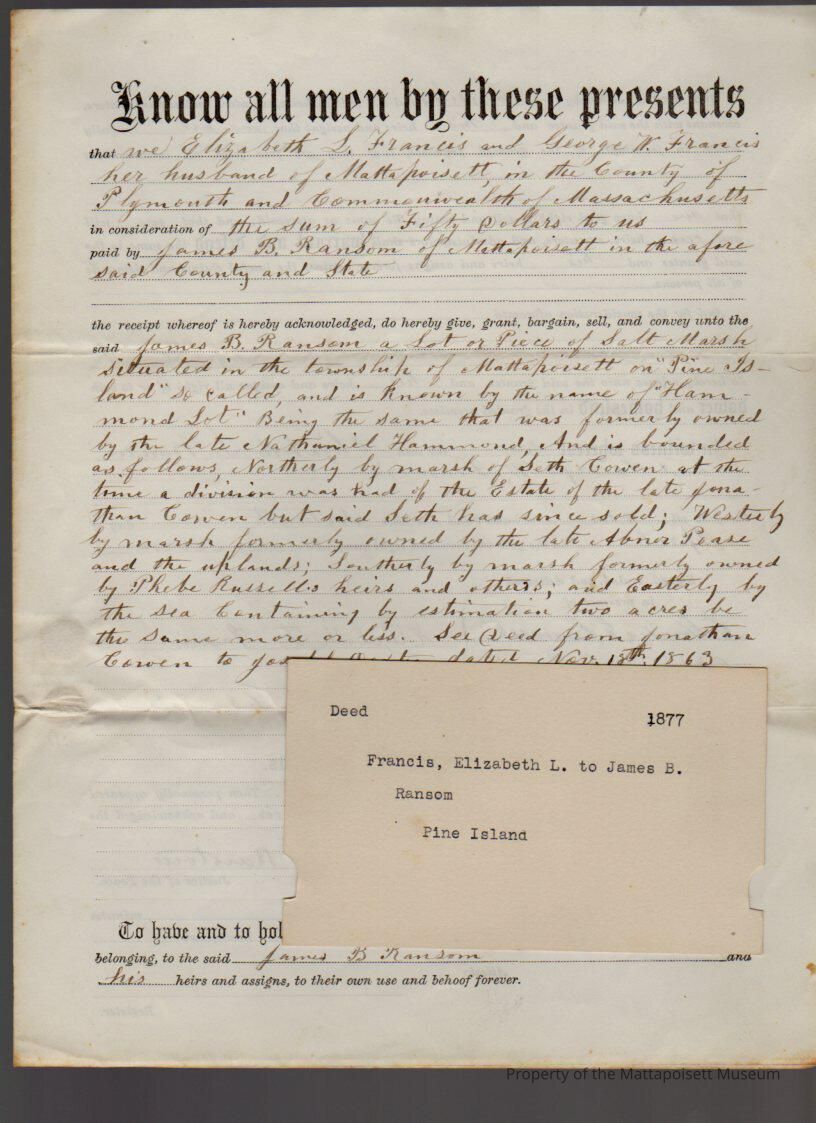 Know all men by these presents
that we Elizabeth L. Francis and George W. Francis
her husband of Mattapoisett, in the County of
Plymouth and Commonwealth of Massachusetts
in consideration of the sum of Fifty Dollars to us
paid by James B. Ransom of Mattapoisett in the afore
said County and State
the receipt whereof is hereby acknowledged, do hereby give, grant, bargain, sell, and convey unto the
said James B. Ransom a Lot or Piece of Salt Marsh
situated in the township of Mattapoisett on "Pine Is-
land" so called, and is known by the name of "Ham-
mond Lot" Being the same that was formerly owned
by the late Nathaniel Hammond, And is bounded
as follows, Northerly by marsh of Seth Cowen at the
time a division was had of the Estate of the late Jona-
than Cowen but said Seth has since sold; Westerly
by marsh formerly owned by the late Abner Pease
and the uplands; Southerly by marsh formerly owned
by Phebe Russells heirs and others; and Easterly by
the sea Containing by estimation two acres be
the same more or less. See Deed from Jonathan
Cowen to dated Nov. 18th. 1863
Deed 1877
Francis, Elizabeth L. to James B.
Ransom
Pine Island
To have and to hol
belonging, to the said James B Ransom and
his heirs and assigns, to their own use and behoof forever.
Property of the Mattapoisett Museum